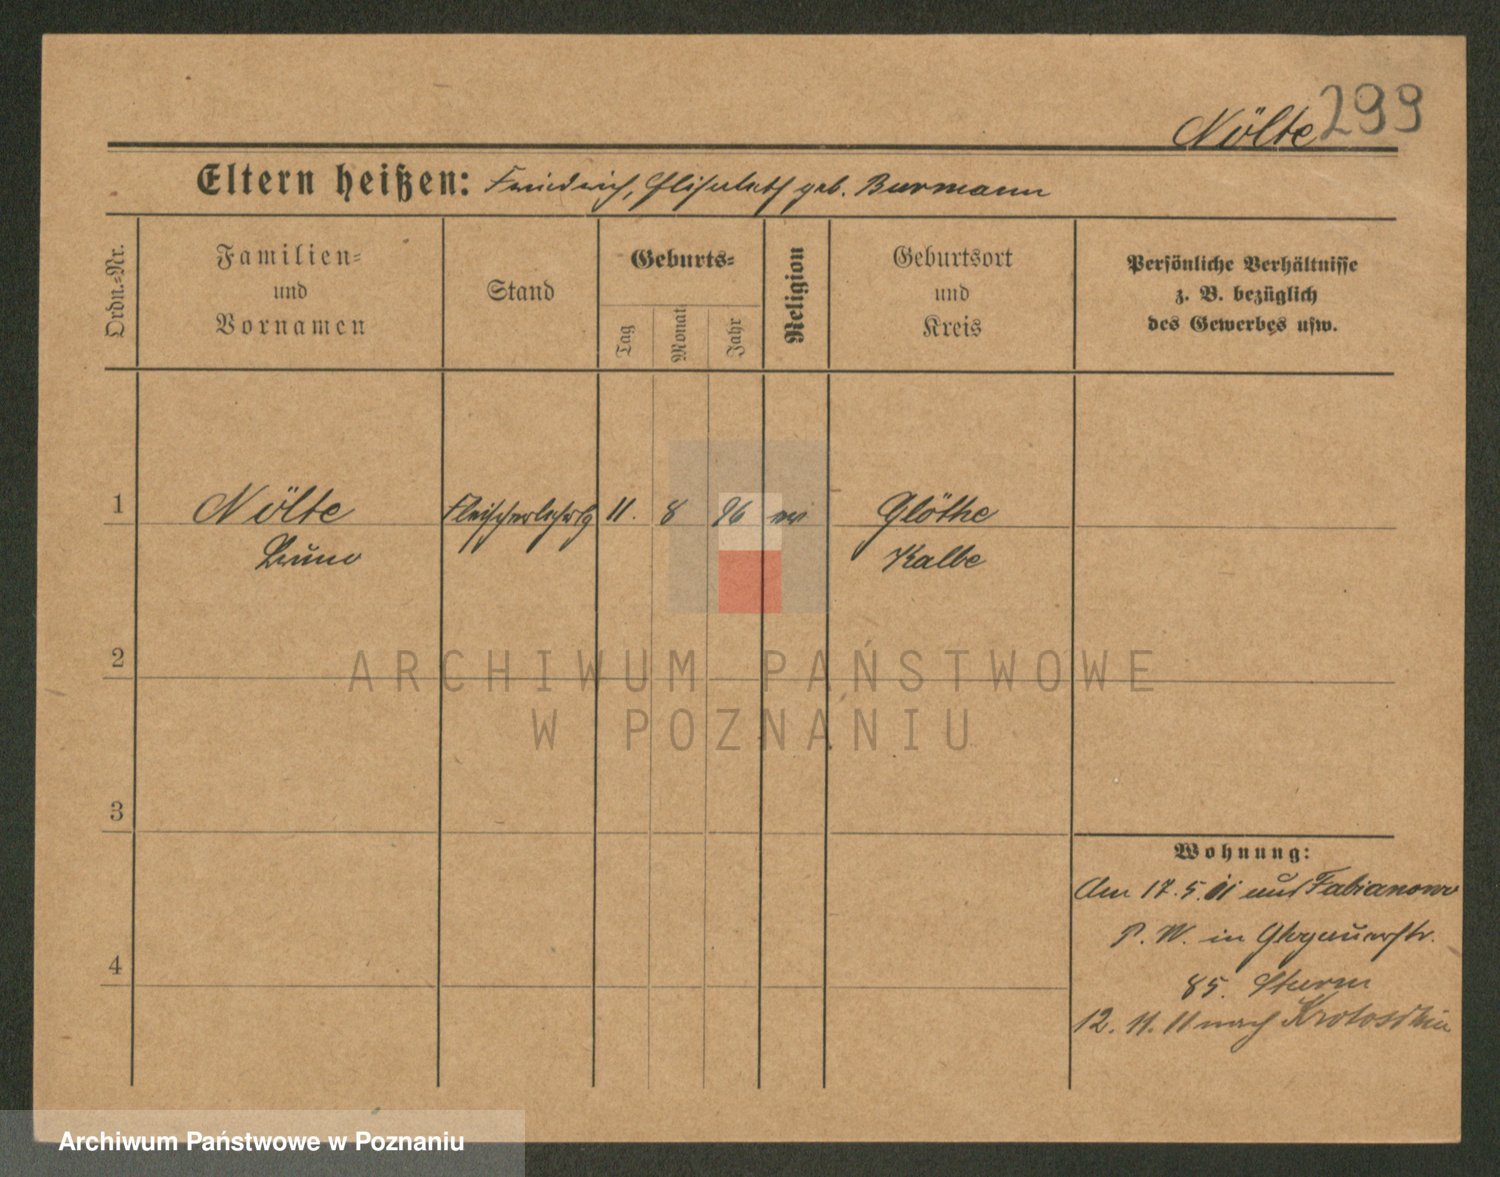 Nölte 299
Eltern heißen: Friedrich, Elisabeth geb. Burmann
Ordn.-Nr.
Familien- und Vornamen
Stand
Geburts-
Tag
Monat
Jahr
Religion
Geburtsort und Kreis
Persönliche Verhältnisse
z. B. bezüglich
des Gewerbes usw.
1 Nölte Fleischerlehrlg 11. 8 96 ev Glöthe
Bruno Kalbe
2
3
4
Wohnung:
Am 17.5.11 aus Fabianowo
P. W. in Glogauerstr.
85. Sturm
12. 11. 11 nach Krotoschin
ARCHIWUM PAŃSTWOWE
W POZNANIU
Archiwum Państwowe w Poznaniu